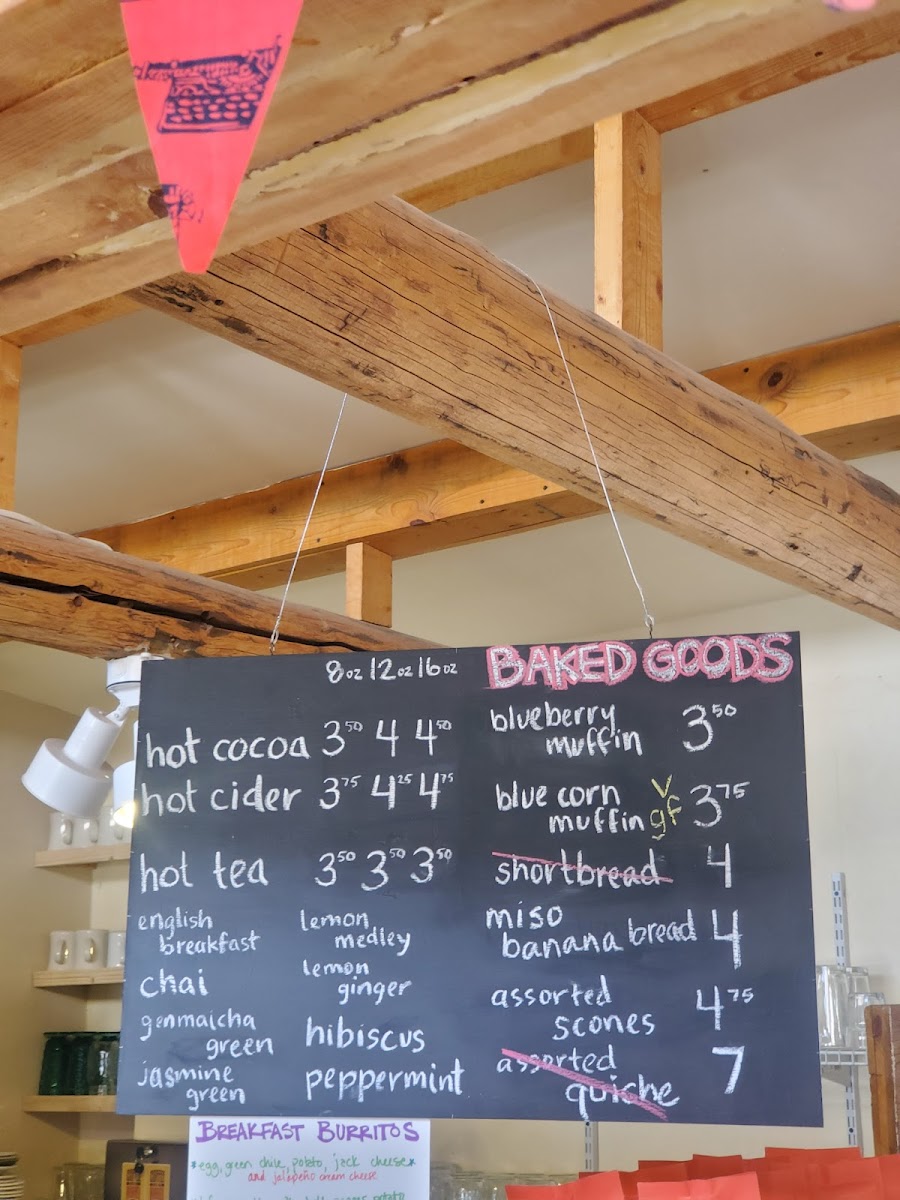 8oz 12oz 16oz
hot cocoa 3⁵⁰ 4 4⁵⁰
hot cider 3⁷⁵ 4²⁵ 4⁷⁵
hot tea 3⁵⁰ 3⁵⁰ 3⁵⁰
english
breakfast
chai
genmaicha
green
jasmine
green
lemon
medley
lemon
ginger
hibiscus
peppermint
BAKED GOODS
blueberry
muffin 3⁵⁰
blue corn v
muffin gf 3⁷⁵
shortbread 4
miso
banana bread 4
assorted
scones 4⁷⁵
assorted
quiche 7
BREAKFAST BURRITOS
*egg, green chile, potato, jack cheese*
and jalapeño cream cheese
potato